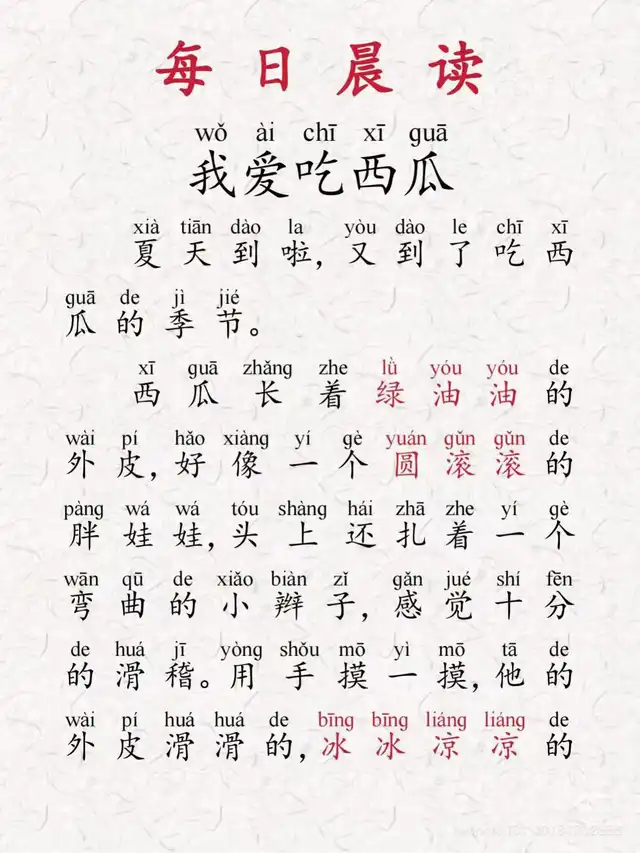 每日晨读
wǒ ài chī xī guā
我爱吃西瓜
xià tiān dào la yòu dào le chī xī
夏天到啦，又到了吃西
guā de jì jié
瓜的季节。
xī guā zhǎng zhe lǜ yóu yóu de
西瓜长着绿油油的
wài pí hǎo xiàng yí gè yuán gǔn gǔn de
外皮，好像一个圆滚滚的
pàng wá wá tóu shàng hái zhā zhe yí gè
胖娃娃，头上还扎着一个
wān qū de xiǎo biàn zǐ gǎn jué shí fēn
弯曲的小辫子，感觉十分
de huá jī yòng shǒu mō yì mō tā de
的滑稽。用手摸一摸，他的
wài pí huá huá de bīng bīng liáng liáng de
外皮滑滑的，冰冰凉凉的